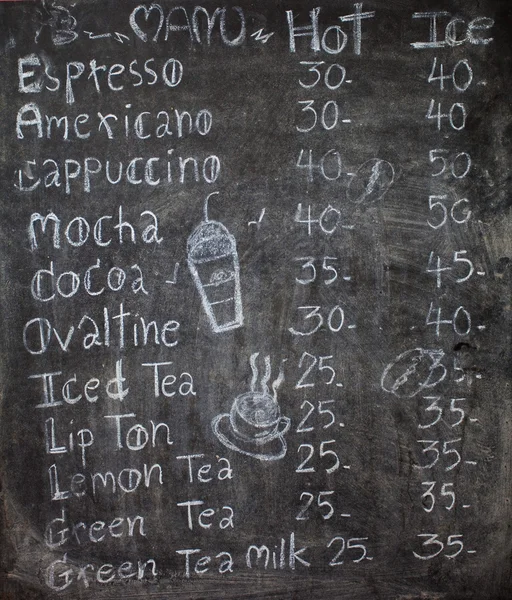 MANU Hot Ice
Espresso 30- 40-
Americano 30- 40
Cappuccino 40- 50
Mocha 40- 50-
Cocoa 35- 45-
Ovaltine 30- 40-
Iced Tea 25- 35-
Lip Ton 25- 35-
Lemon Tea 25- 35-
Green Tea 25- 35-
Green Tea milk 25- 35-